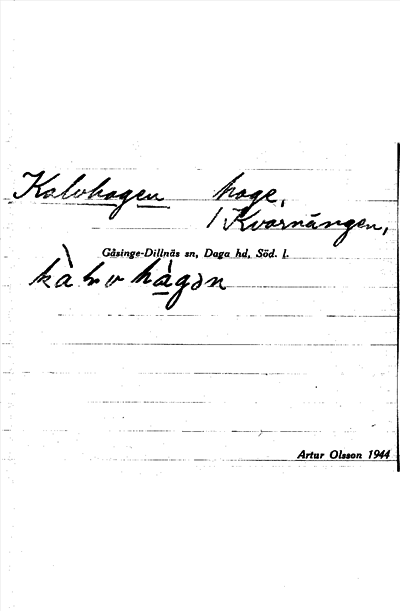 Kalvhagen hage,
/ Kvarnängen,
Gåsinge-Dillnäs sn, Daga hd, Söd. l.
hàgən
Artur Olsson 1944